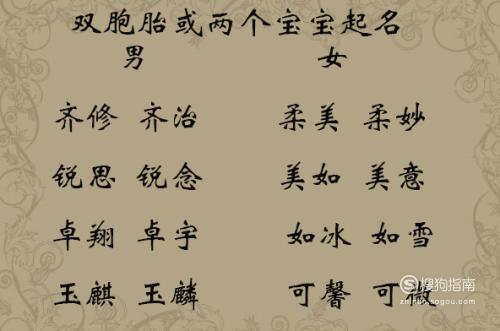 双胞胎或两个宝宝起名
男 女
齐修 齐治 柔美 柔妙
锐思 锐念 美如 美意
卓翔 卓宇 如冰 如雪
玉麒 玉麟 可馨 可薇
搜狗指南
zhinan.sogou.com